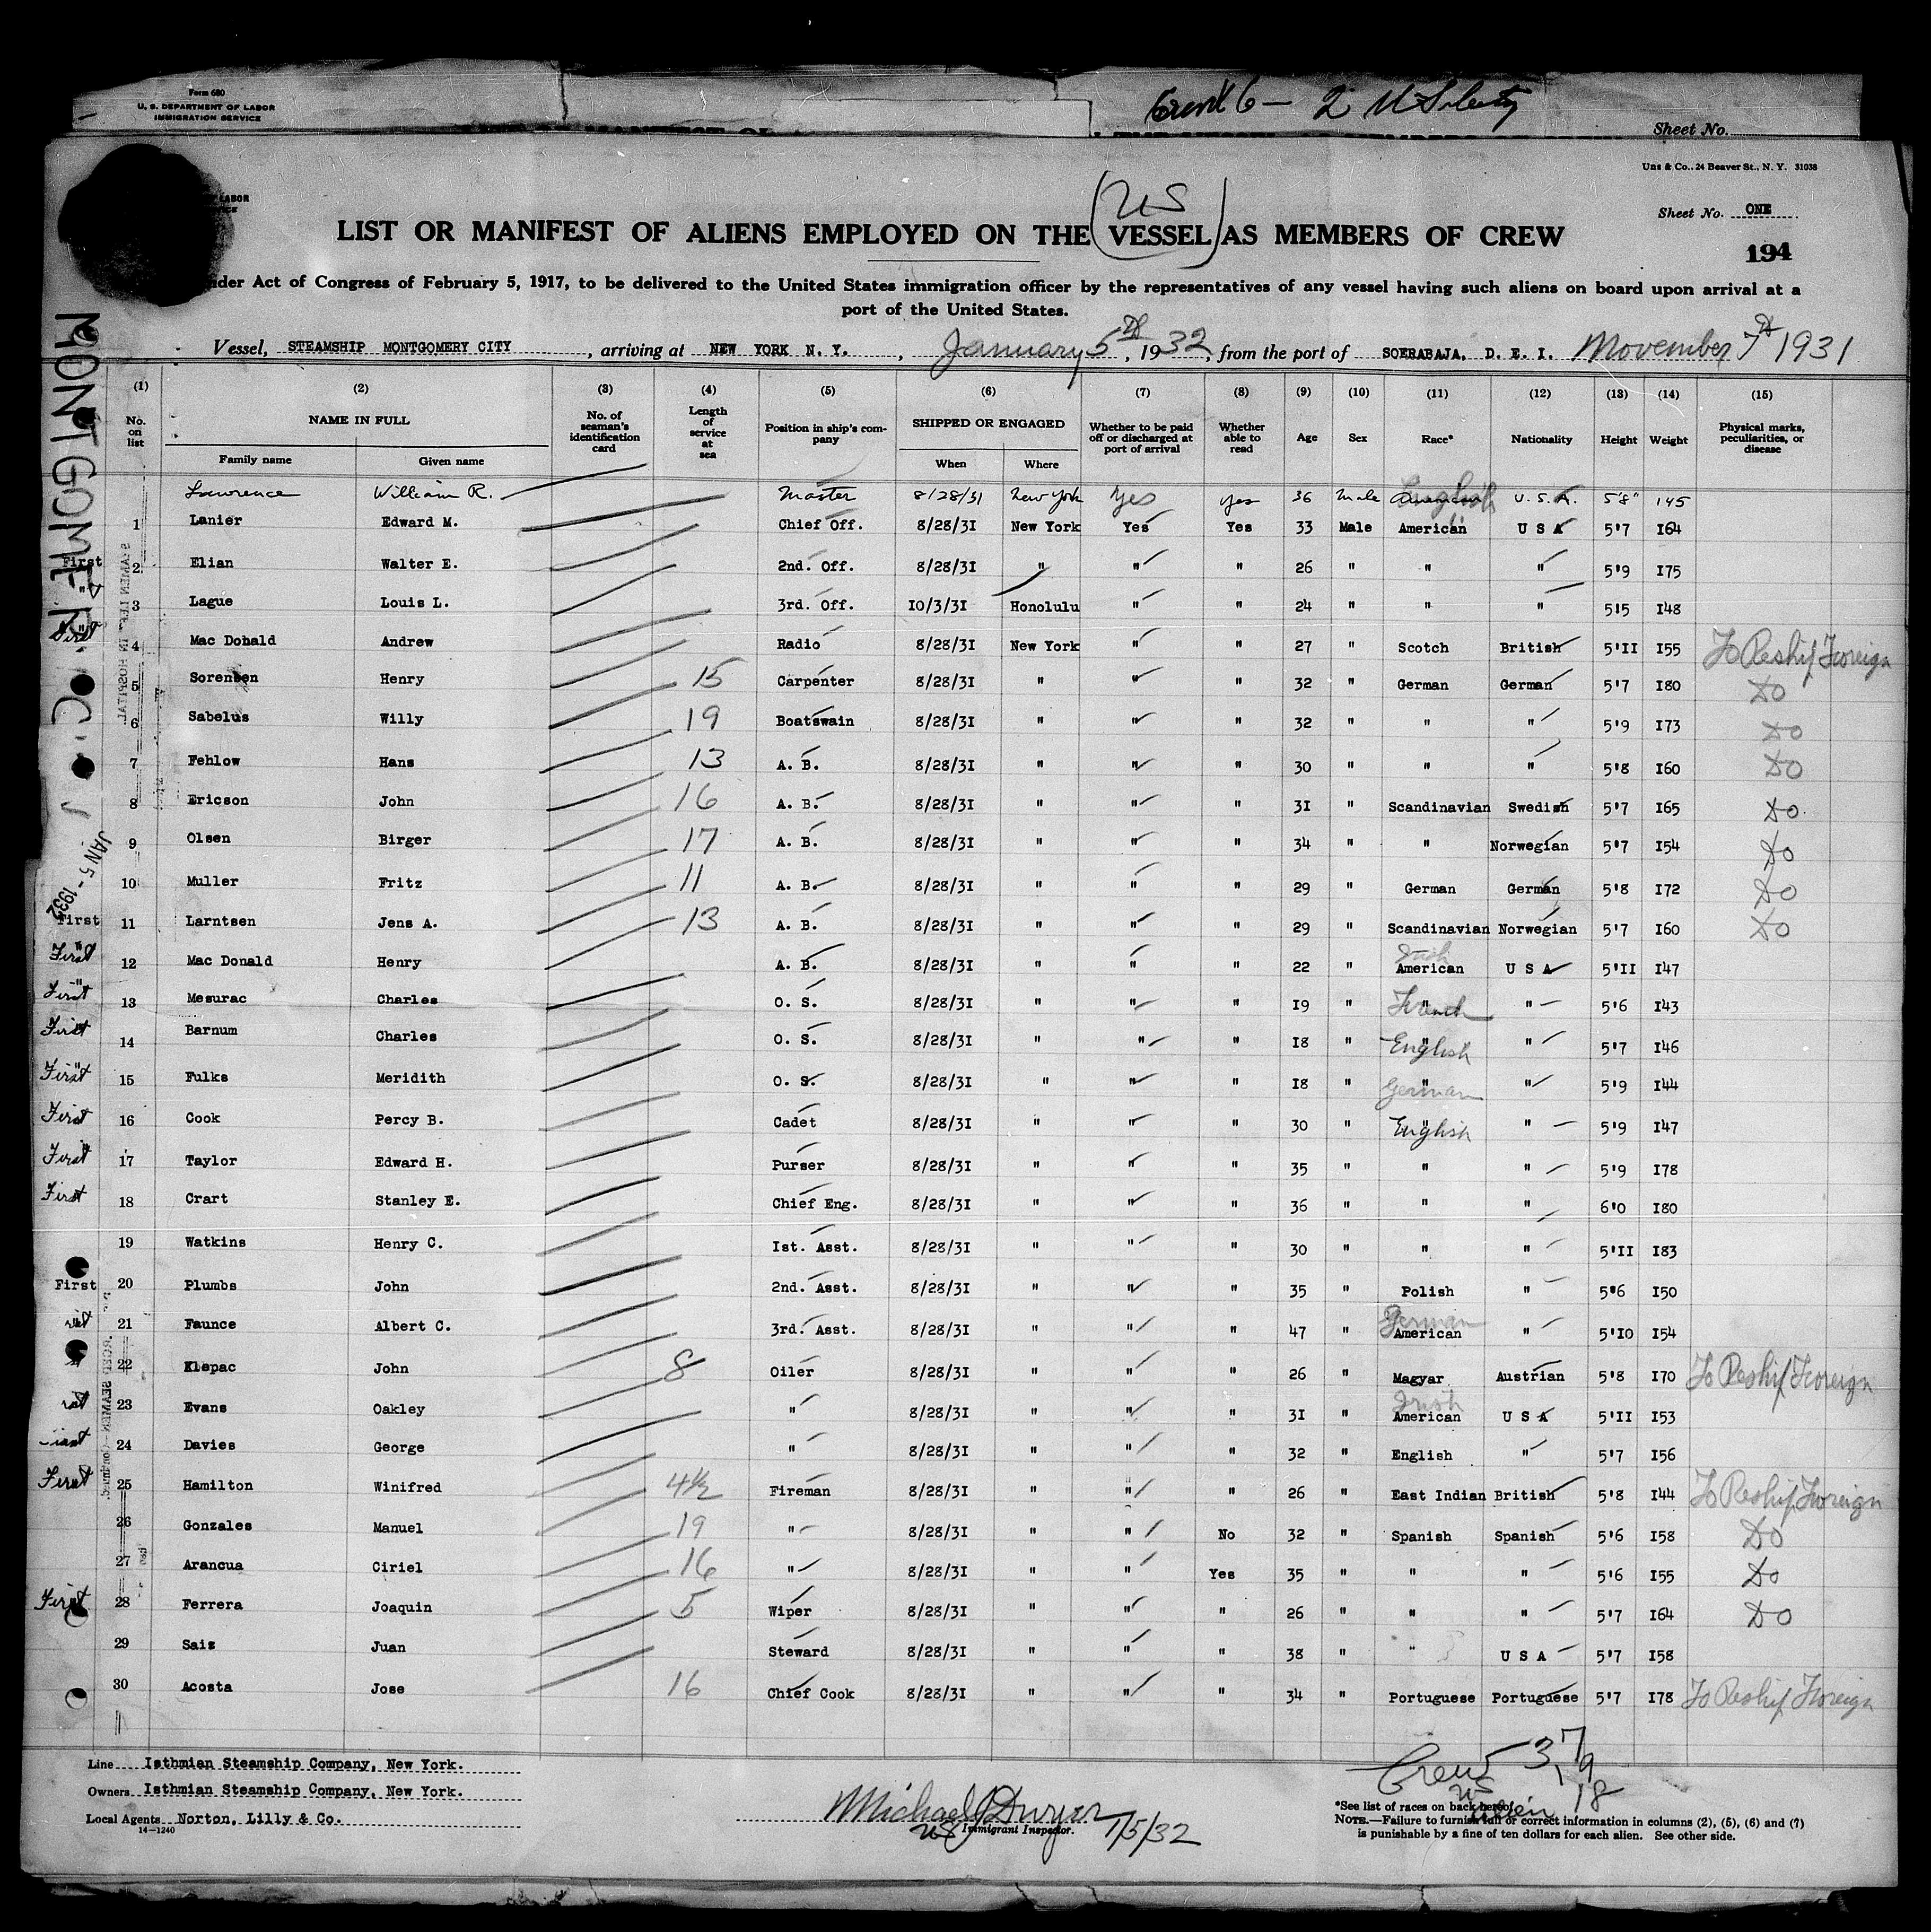 Form 680
U. S. DEPARTMENT OF LABOR
IMMIGRATION SERVICE
Sheet No.
Uns & Co., 24 Beaver St., N. Y. 31038
LABOR
Sheet No. ONE
(US)
LIST OR MANIFEST OF ALIENS EMPLOYED ON THE VESSEL AS MEMBERS OF CREW
194
der Act of Congress of February 5, 1917, to be delivered to the United States immigration officer by the representatives of any vessel having such aliens on board upon arrival at a
port of the United States.
Vessel, STEAMSHIP MONTGOMERY CITY, arriving at NEW YORK N. Y., January 5th, 1932, from the port of SOERABAJA, D. E. I. November 7th 1931
(1) (2) (3) (4) (5) (6) (7) (8) (9) (10) (11) (12) (13) (14) (15)
No. on list NAME IN FULL No. of seaman's identification card Length of service at sea Position in ship's company SHIPPED OR ENGAGED Whether to be paid off or discharged at port of arrival Whether able to read Age Sex Race* Nationality Height Weight Physical marks, peculiarities, or disease
Family name Given name When Where
Lawrence William R. Master 8/28/31 New York Yes yes 36 Male American English U.S.A. 5'8" 145
1 Lanier Edward M. Chief Off. 8/28/31 New York Yes Yes 33 Male American U S A 5'7 164
First 2 Elian Walter E. 2nd. Off. 8/28/31 " " " 26 " " " 5'9 175
" 3 Lague Louis L. 3rd. Off. 10/3/31 Honolulu " " 24 " " " 5'5 148
First 4 Mac Donald Andrew Radio 8/28/31 New York " " 27 " Scotch British 5'11 155 To Reship Foreign
5 Sorensen Henry 15 Carpenter 8/28/31 " " " 32 " German German 5'7 180 Do
6 Sabelus Willy 19 Boatswain 8/28/31 " " " 32 " " " 5'9 173 Do
7 Fehlow Hans 13 A. B. 8/28/31 " " " 30 " " " 5'8 160 Do
8 Ericson John 16 A. B. 8/28/31 " " " 31 " Scandinavian Swedish 5'7 165 Do
9 Olsen Birger 17 A. B. 8/28/31 " " " 34 " " Norwegian 5'7 154 Do
10 Muller Fritz 11 A. B. 8/28/31 " " " 29 " German German 5'8 172 Do
First 11 Larntsen Jens A. 13 A. B. 8/28/31 " " " 29 " Scandinavian Norwegian 5'7 160 Do
First 12 Mac Donald Henry A. B. 8/28/31 " " " 22 " Irish American U S A 5'11 147
First 13 Mesurac Charles O. S. 8/28/31 " " " 19 " French " 5'6 143
First 14 Barnum Charles O. S. 8/28/31 " " " 18 " English " 5'7 146
First 15 Fulks Meridith O. S. 8/28/31 " " " 18 " German " 5'9 144
First 16 Cook Percy B. Cadet 8/28/31 " " " 30 " English " 5'9 147
First 17 Taylor Edward H. Purser 8/28/31 " " " 35 " " " 5'9 178
First 18 Crart Stanley E. Chief Eng. 8/28/31 " " " 36 " " " 6'0 180
19 Watkins Henry C. 1st. Asst. 8/28/31 " " " 30 " " " 5'11 183
First 20 Plumbs John 2nd. Asst. 8/28/31 " " " 35 " Polish " 5'6 150
21 Faunce Albert C. 3rd. Asst. 8/28/31 " " " 47 " German American " 5'10 154
22 Klepac John 8 Oiler 8/28/31 " " " 26 " Magyar Austrian 5'8 170 To Reship Foreign
23 Evans Oakley " 8/28/31 " " " 31 " Irish American U S A 5'11 153
24 Davies George " 8/28/31 " " " 32 " English " 5'7 156
First 25 Hamilton Winifred 4½ Fireman 8/28/31 " " " 26 " East Indian British 5'8 144 To Reship Foreign
26 Gonzales Manuel 19 " 8/28/31 " " No 32 " Spanish Spanish 5'6 158 Do
27 Arancua Ciriel 16 " 8/28/31 " " Yes 35 " " " 5'6 155 Do
First 28 Ferrera Joaquin 5 Wiper 8/28/31 " " " 26 " " " 5'7 164 Do
29 Saiz Juan Steward 8/28/31 " " " 38 " " U S A 5'7 158
30 Acosta Jose 16 Chief Cook 8/28/31 " " " 34 " Portuguese Portuguese 5'7 178 To Reship Foreign
JAN 5 - 1932
Line Isthmian Steamship Company, New York.
Owners Isthmian Steamship Company, New York.
Local Agents Norton, Lilly & Co.
14-1240
Michael J Dwyer 1/5/32
Immigrant Inspector.
Crew 37
US 19
alien 18
*See list of races on back hereof.
NOTE.—Failure to furnish full or correct information in columns (2), (5), (6) and (7)
is punishable by a fine of ten dollars for each alien. See other side.